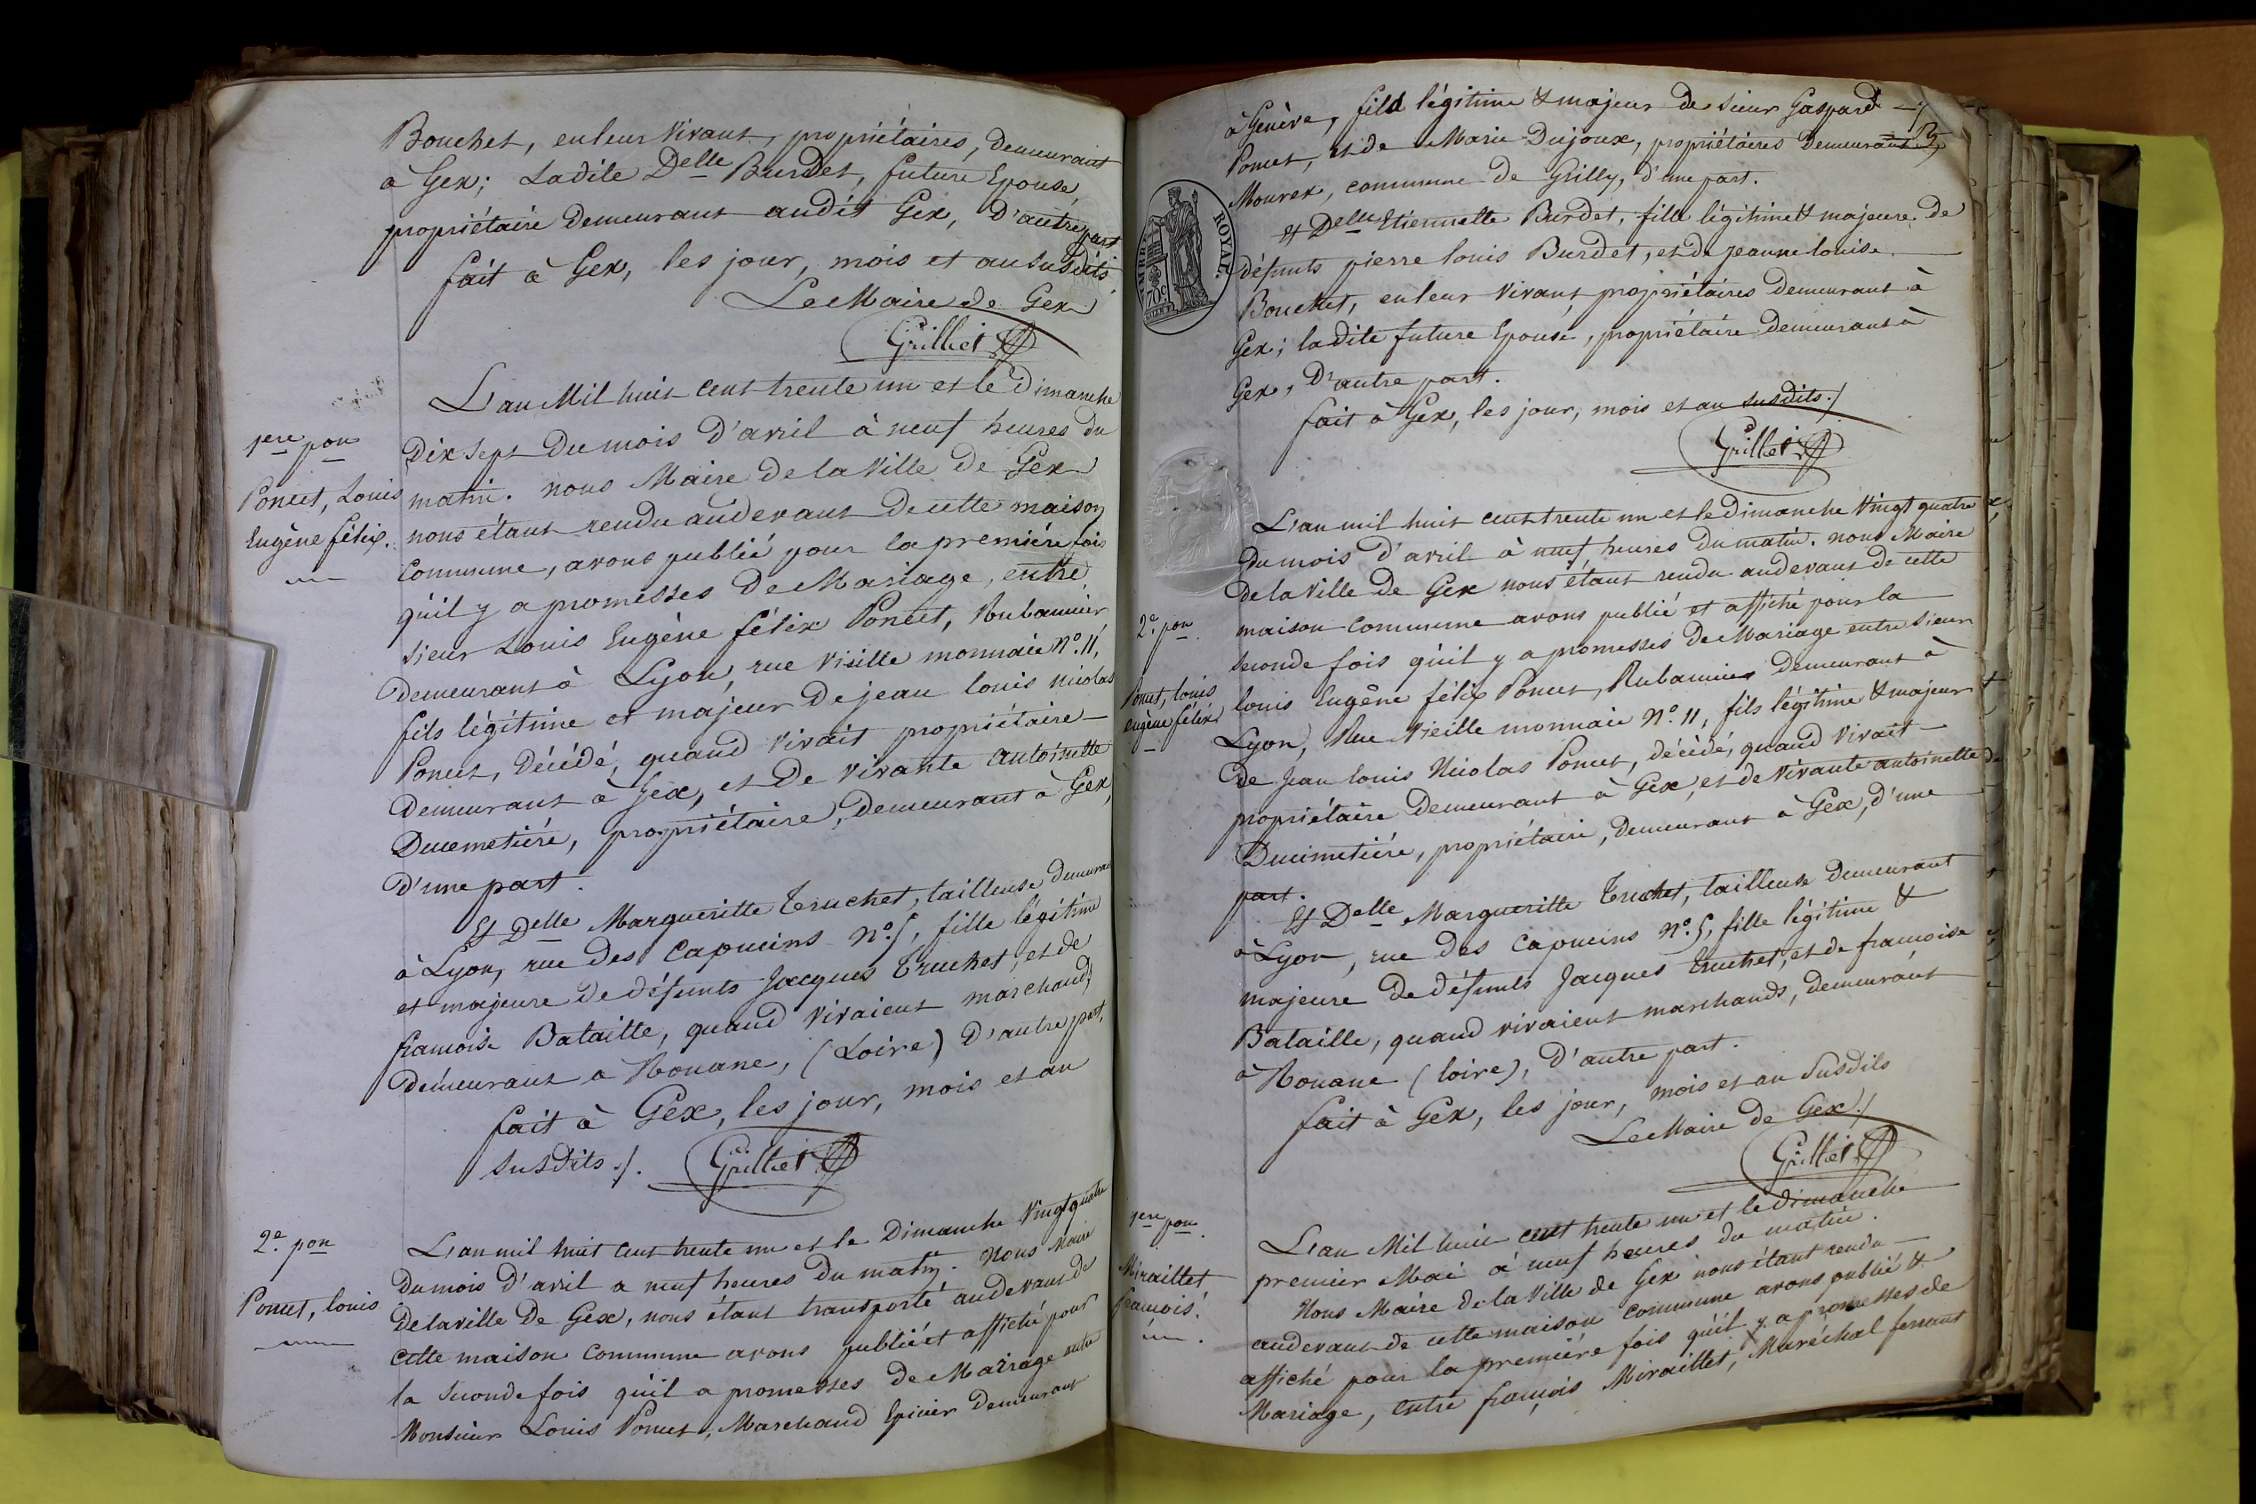 Bouchet, en leur vivant, propriétaires, demeurant
à Gex; Ladite Delle Burdet, future Epouse,
propriétaire demeurant audit Gex, D'autre part
fait à Gex, les jour, mois et an susdits
Le Maire de Gex
Grilliet
1ere pon
Poncet, Louis
Eugène félix.
L'an Mil huit cent trente un et le Dimanche
Dix sept Du mois D'avril à neuf heures du
matin. nous Maire de la Ville de Gex
nous étant rendu audevant De cette maison
Commune, avons publié pour la première fois
qu'il y a promesses De Mariage, entre
sieur Louis Eugène félix Poncet, Rubannier
Demeurant à Lyon, rue vieille monnaie N.o 11,
fils légitime et majeur De jean louis nicolas
Poncet, Décédé, quand vivait propriétaire
Demeurant à Gex, et De vivante antoinette
Ducemetière, propriétaire, Demeurant à Gex,
D'une part.
Et Delle Margueritte Truchet, tailleuse demeurant
à Lyon, rue Des Capucins N.o 5, fille légitime
et majeure De défunts Jacques Truchet, et de
francoise Bataille, quand vivaient marchands,
demeurant a Rouane, (Loire) D'autre part.
fait à Gex, les jour, mois et an
susdits ./. Grilliet
2.e pon
Poncet, louis
L'an mil huit cent trente un et le Dimanche Vingt quatre
Du mois D'avril a neuf heures Du matin. Nous Maire
De la ville De Gex, nous étant transporté audevant de
cette maison Commune avons publié et affiché pour
la seconde fois qu'il a promesses De Mariage entre
Monsieur Louis Poncet, Marchand Epicier Demeurant
à Genève, fils légitime & majeur de sieur Gaspard
Poncet, et de Marie Dujoux, propriétaires Demeurant à
Mourex, commune de Grilly, d'une part.
& Delle Etiennette Burdet, fille légitime & majeure de
défunts pierre louis Burdet, et de jeanne louise
Bouchet, en leur vivant, propriétaires Demeurant à
Gex; la dite future Epouse, propriétaire Demeurant à
Gex, D'autre part.
fait à Gex, les jour, mois et an susdits ./
Grilliet
TIMBRE ROYAL
70c
2.e pon
Poncet, louis
eugène félix
L'an mil huit cent trente un et le Dimanche Vingt quatre
Du mois D'avril à neuf heures Du matin. nous Maire
De la Ville De Gex nous étant rendu audevant de cette
maison Commune avons publié et affiché pour la
seconde fois qu'il y a promesses De Mariage entre sieur
louis Eugène félix Poncet, Rubannier Demeurant à
Lyon, Rue Vieille monnaie N.o 11, fils légitime & majeur
De Jean louis Nicolas Poncet, Décédé, quand vivait
propriétaire Demeurant à Gex, et de Vivante antoinette
Ducimetière, propriétaire, Demeurant à Gex, d'une
part.
Et Delle Margueritte Truchet, tailleuse Demeurant
à Lyon, rue Des Capucins N.o 5, fille légitime &
majeure De défunts Jacques Truchet, et de francoise
Bataille, quand vivaient marchands, demeurant
à Rouane (loire), D'autre part.
fait à Gex, les jour, mois et an susdits
Le Maire de Gex ./
Grilliet
1ere pon
Miraillet
francois.
L'an Mil huit cent trente un et le dimanche
premier Mai à neuf heures du matin.
Nous Maire De la Ville de Gex nous étant rendu
audevant de cette maison commune avons publié &
affiché pour la première fois qu'il y a promesses de
Mariage, entre françois Miraillet, Maréchal ferrant